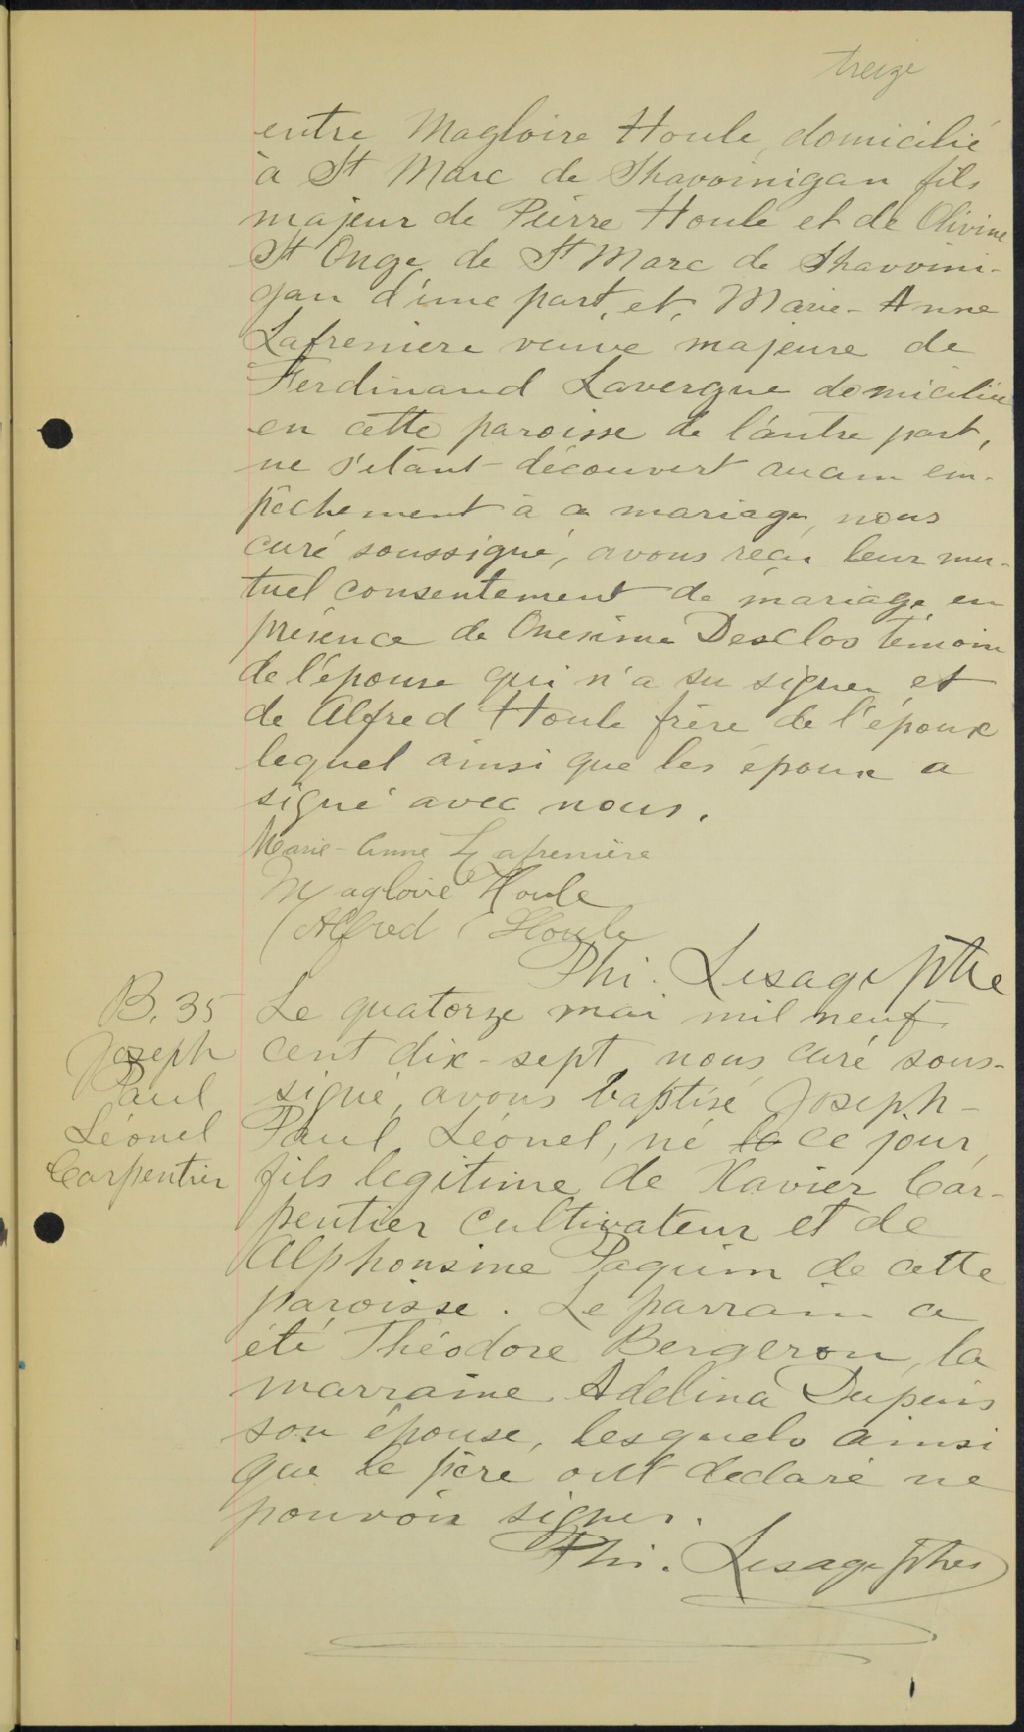 treize
entre Magloire Houle, domicilié
à St Marc de Shawinigan fils
majeur de Pierre Houle et de Olivine
St Onge de St Marc de Shawini-
gan d'une part, et, Marie-Anne
Lafreniere veuve majeure de
Ferdinand Lavergne domiciliée
en cette paroisse de l'autre part,
ne s'étant découvert aucun em-
pêchement à ce mariage, nous
curé soussigné, avons reçu leur mu-
tuel consentement de mariage en
présence de Onesime Desclos témoin
de l'épouse qui n'a su signer et
de Alfred Houle frère de l'époux
lequel ainsi que les époux a
signé avec nous.
Marie-Anne Lafrenière
Magloire Houle
Alfred Houle
Phi. Lesage ptre
B. 35
Joseph
Paul
Léonel
Carpentier
Le quatorze mai mil neuf
cent dix-sept nous curé sous-
signé, avons baptisé Joseph-
Paul, Léonel, né le ce jour,
fils legitime de Xavier Car-
pentier cultivateur et de
Alphonsine Paquin de cette
paroisse. Le parrain a
été Théodore Bergeron, la
marraine Adelina Dupuis
son épouse, lesquels ainsi
que le père ont declaré ne
pouvoir signer.
Phi. Lesage ptre